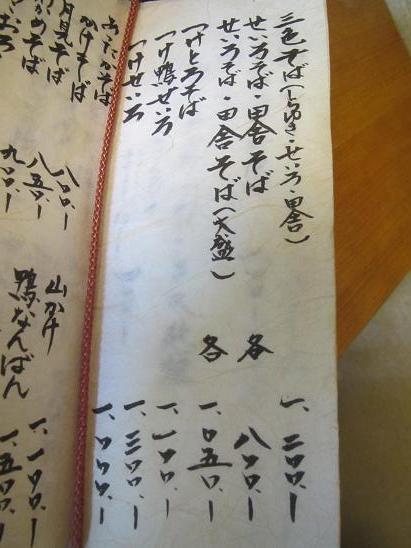 三色そば（さらしな・せいろ・田舎） 一、二〇〇、ー
せいろそば・田舎そば 各 八〇〇、ー
せいろそば・田舎そば（大盛） 各 一、〇五〇、ー
つけとろそば 一、一〇〇、ー
つけ鴨せいろ 一、三〇〇、ー
つけせいろ 一、〇〇〇、ー
かけそば 八〇〇、ー
月見そば 八五〇、ー
九〇〇、ー
山かけ 一、一〇〇、ー
鴨なんばん 一、五〇〇、ー